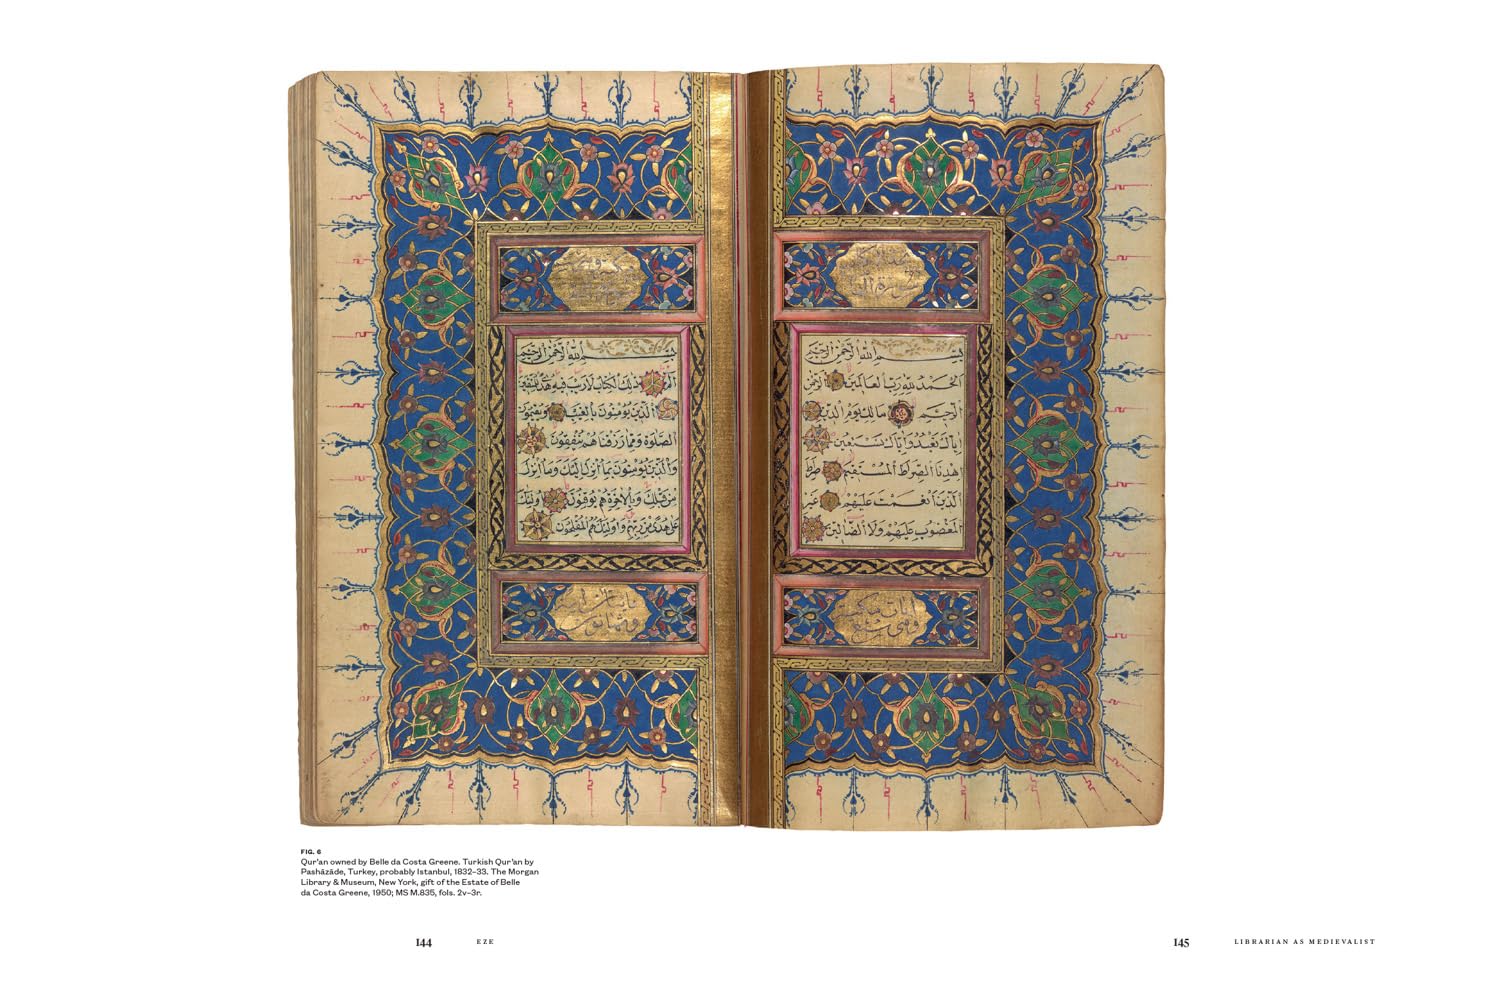 بسم الله الرحمن الرحيم
الحمد لله رب العالمين الرحمن
الرحيم مالك يوم الدين
اياك نعبد واياك نستعين
اهدنا الصراط المستقيم صراط
الذين انعمت عليهم غير
المغضوب عليهم ولا الضالين
ايات مكية
وهي سبع
بسم الله الرحمن الرحيم
الم ذلك الكتاب لا ريب فيه هدى للمتقين
الذين يؤمنون بالغيب ويقيمون
الصلوة ومما رزقناهم ينفقون
والذين يؤمنون بما انزل اليك وما انزل
من قبلك وبالاخرة هم يوقنون اولئك
على هدى من ربهم واولئك هم المفلحون
FIG. 6
Qur’an owned by Belle da Costa Greene. Turkish Qur’an by
Pashāzāde, Turkey, probably Istanbul, 1832–33. The Morgan
Library & Museum, New York, gift of the Estate of Belle
da Costa Greene, 1950; MS M.835, fols. 2v–3r.
144 EZE
145 LIBRARIAN AS MEDIEVALIST